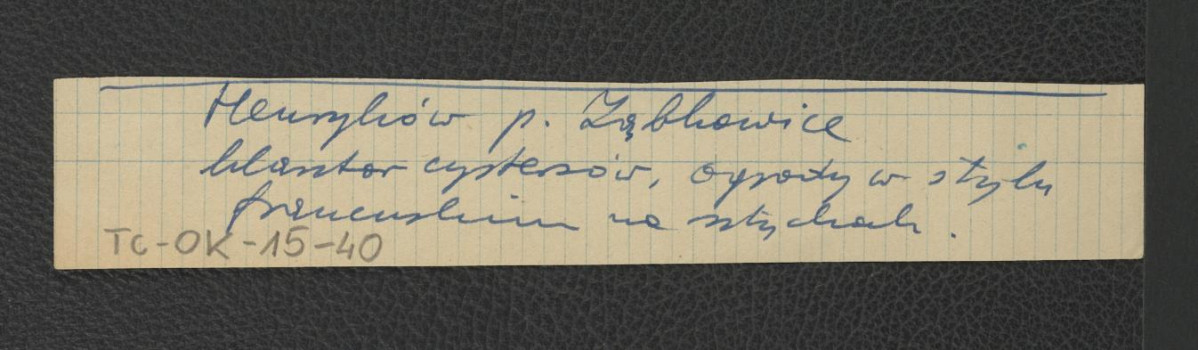 Henryków p. Ząbkowice
klasztor cystersów, ogrody w stylu
francuskim na sztychach.
TC-OK-15-40